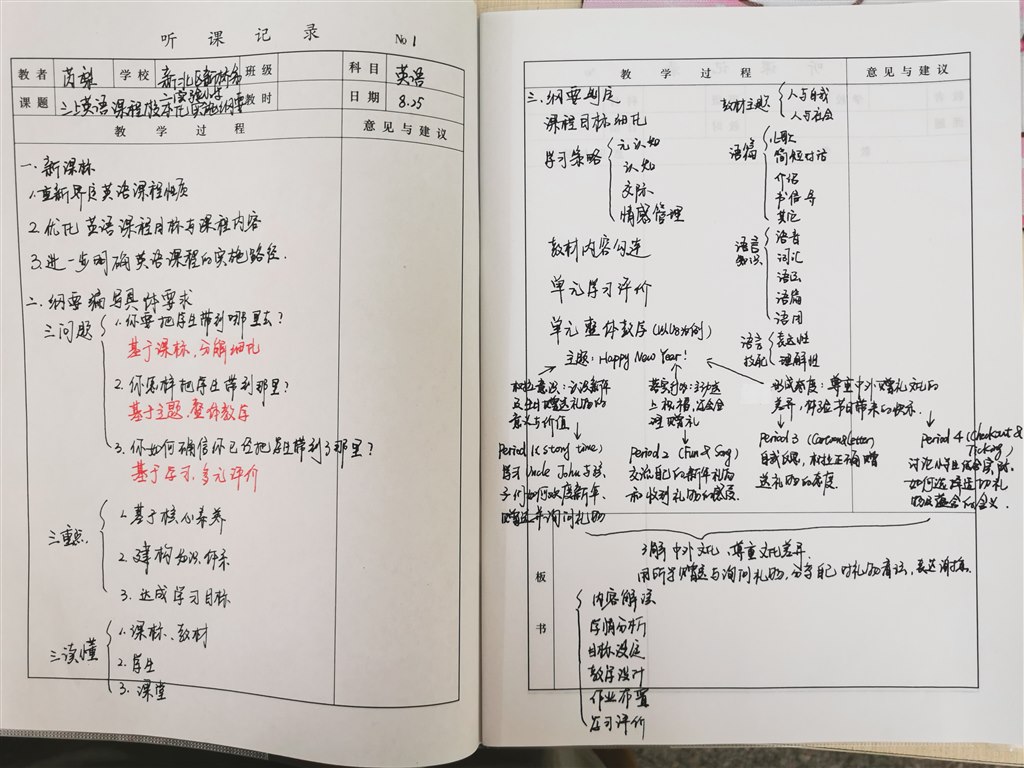 听课记录 No 1
教者 芮梨 学校 新北区新桥第二实验小学 班级 科目 英语
课题 三上英语课程校本化实施纲要 教时 日期 8.25
教学过程 意见与建议
一.新课标
1.重新界定英语课程性质
2.优化英语课程目标与课程内容
3.进一步明确英语课程的实施路径.
二.纲要编写具体要求
三问题
1.你要把学生带到哪里去?
基于课标,分解细化
2.你怎样把学生带到那里?
基于主题,整体教学
3.你如何确信你已经把学生带到了那里?
基于学习,多元评价
三重点
1.基于核心素养
2.建构知识体系
3.达成学习目标
三读懂
1.课标、教材
2.学生
3.课堂
教学过程 意见与建议
三.纲要制定
课程目标细化
学习策略
元认知
认知
交际
情感管理
教材内容勾连
单元学习评价
单元整体教学(以U8为例)
教材主题
人与自我
人与社会
语篇
歌
简短对话
介绍
书信
其它
语言知识
语音
词汇
语法
语篇
语用
语言技能
表达性
理解性
主题:Happy New Year!
意识:认识新年
及赠送礼物的
意义与价值
理赠礼
形成态度:尊重中外赠礼文化的
差异,体验节日带来的快乐.
Period 1(Story time)
学习Uncle John与孩
子们如何欢度新年,
赠送并询问礼物
Period 2 (Fun & Song)
交流自己的新年礼物
和收到礼物的感受.
Period 3 (Cartoon&Letter)
送礼物的态度.
Period 4 (Checkout & Ticking)
讨论小学生
如何选择送的礼
物及蕴含的含义.
板书
了解中外文化,尊重文化差异.
用所学赠送与询问礼物,分享自己对礼物看法,表达谢意.
内容解读
学情分析
目标设定
教学设计
作业布置
学习评价